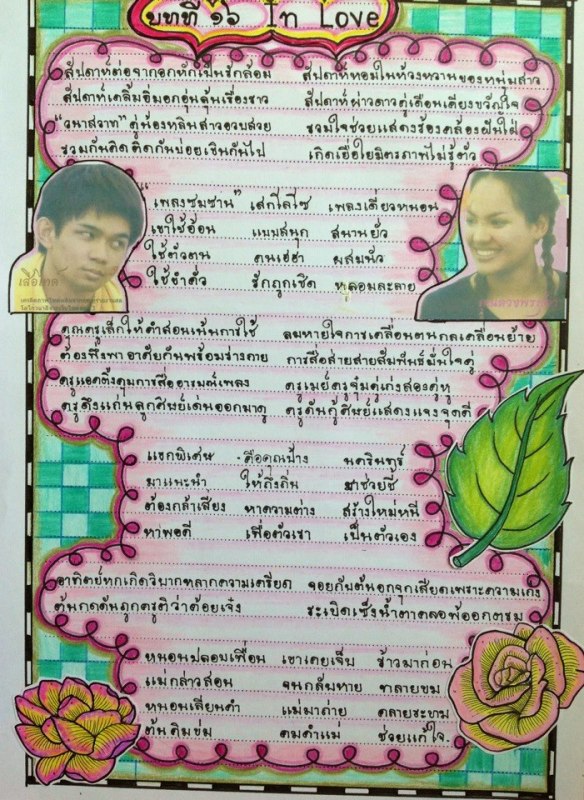 บทที่ ๑๖ In Love
สัปดาห์ต่อจากอกหักเป็นรักล้อม สัปดาห์หอมในห้วงหวานของหนุ่มสาว
สัปดาห์เคลิ้มอิ่มอกอุ่นกรุ่นเรื่องราว สัปดาห์ผ่าวดาวคู่เดือนเคียงขวัญใจ
"วนาสวาท" คู่น้องหลินสาวอวบสวย รวมใจช่วยแสดงร้องคล้องฝันใฝ่
รวมกันคิดติดกันบ่อยเขินกันไป เกิดเยื่อใยมิตรภาพไม่รู้ตัว
"เพลงชมซาน" เสกโลโซ เพลงเดี่ยวหนอน
เขาใช้อ้อน แบบสนุก สนานยั่ว
ใช้ตัวตน คนเฮฮา ผสมนัว
ใช้ยำคั่ว รักถูกเชิด หลอมละลาย
คุณครูเล็กให้คำสอนเน้นการใช้ ลมหายใจการเคลื่อนตนกลเคลื่อนย้าย
ต้องพึ่งพาอาศัยกันพร้อมร่างกาย การสื่อสายสายสัมพันธ์มั่นใจคู่
ครูแอดติ้งคุมการสื่ออารมณ์เพลง ครูเมย์ครูจุ๋มคู่เก่งสองคู่หู
ครูดึงแก่นลูกศิษย์เด่นออกมาดู ครูดันกู้ศิษย์แสดงแจงจุดดี
แขกพิเศษ คือคุณป้าง นครินทร์
มาแนะนำ ให้ถึงถิ่น มาช่วยชี้
ต้องกล้าเสียง หาความต่าง สร้างใหม่หนี
หาพอดี เพื่อตัวเขา เป็นตัวเอง
อาทิตย์หกเกิดวิบากหลากความเครียด จอยกับต้นอกจุกเสียดเพราะความเก่ง
ต้นกดดันถูกครูติว่าด้อยเจ๋ง ระเบิดเซ็งน้ำตาคลอพ้ออกตรม
หนอนปลอบเพื่อน เขาเคยเจ็บ ร้าวมาก่อน
แม่กล่าวสอน จนกลับหาย คลายขม
หนอนเลียนคำ แม่มาถ่าย คลายระบม
ต้นคิมข่ม คมคำแม่ ช่วยแก้ใจ